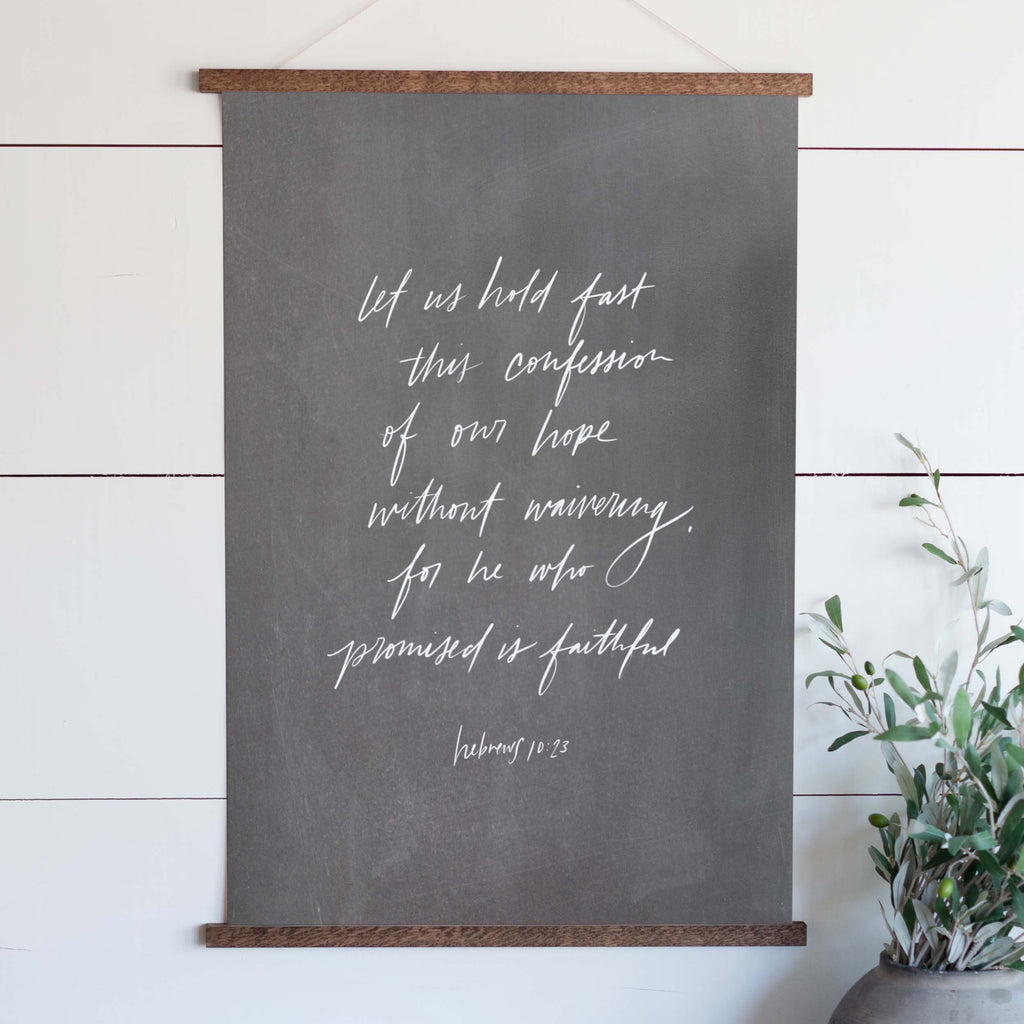 let us hold fast
this confession
of our hope
without waivering.
for he who
promised is faithful
hebrews 10:23